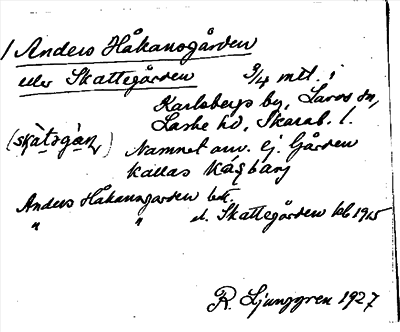 1 Anders Håkansgården
eller Skattegården 3/4 mtl. i
Karlsbergs by, Lavos sn,
Laske hd, Skarab. l.
(skàtəgàṇ) Namnet anv. ej. Gården
kallas
Anders Håkansgården bet.
" " el. Skattegården kb 1915
R. Ljunggren 1927